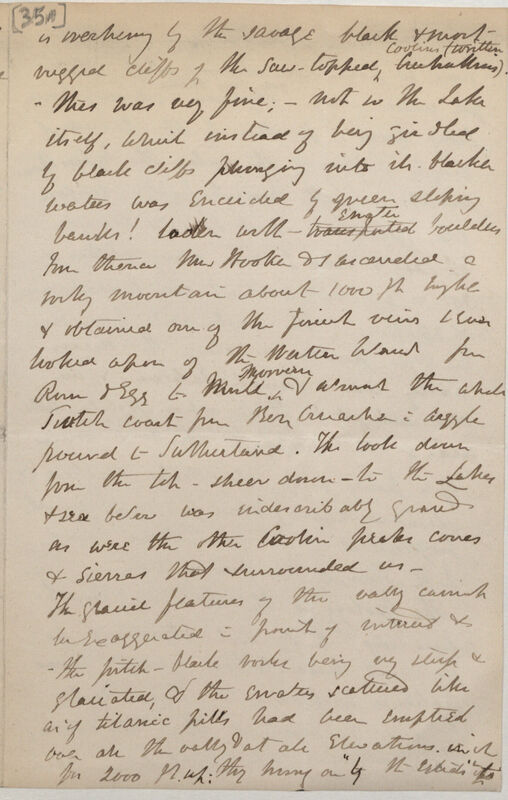 [35A]
is overhung by the savage black & most
rugged cliffs of the Saw-topped Coolins (written
Cuchullins).
- This was very fine; - not so the Lake
itself, which instead of being girdled
by black cliffs plunging into its blacker
waters was encircled by green sloping
banks! laden with - transported Erratic boulders
From thence Mrs Hooker & I ascended a
rocky mountain about 1000 ft high
& obtained one of the finest views I ever
looked upon of the Western Island from
Rum & Egg to Mull, Morvern & almost the whole
Scotch coast from Ben Cruachan in Argyle
round to Sutherland. The look down
from the top - sheer down - to the Lakes
& sea below was indescribably grand
as were the other Coolin peaks cones
& Sierras that surrounded us -
The glacial features of the valley cannot
be exaggerated in point of interest &
- the pitch-black rocks being very steep &
glaciated, & the erratics scattered like
as if titanic pills had been emptied
over all the valley & at all elevations
for 2000 ft up: they hung on by the